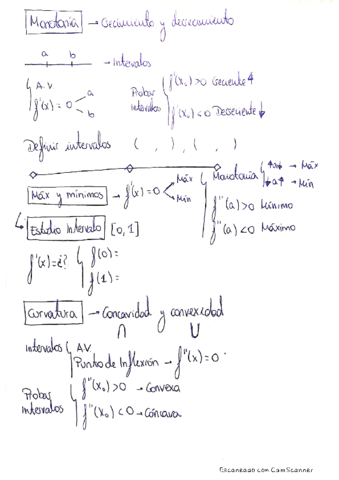 Monotonía → Crecimiento y decrecimiento
a b → Intervalos
A.V
f'(x) = 0 a b
Probar intervalos f'(x₀) > 0 Creciente ↑
f'(x₀) < 0 Decreciente ↓
Definir intervalos ( , ) ( , )
Máx y mínimos → f'(x) = 0 Máx Min
Monotonía ↑a↓ → Máx
↓a↑ → Mín
f''(a) > 0 Mínimo
f''(a) < 0 Máximo
Estudio Intervalo [0, 1]
f'(x) = ¿? f(0) =
f(1) =
Curvatura → Concavidad y convexidad
∩ ∪
Intervalos A.V
Punto de Inflexión → f''(x) = 0
Probar intervalos f''(x₀) > 0 → Convexa
f''(x₀) < 0 → Cóncava
Escaneado con CamScanner